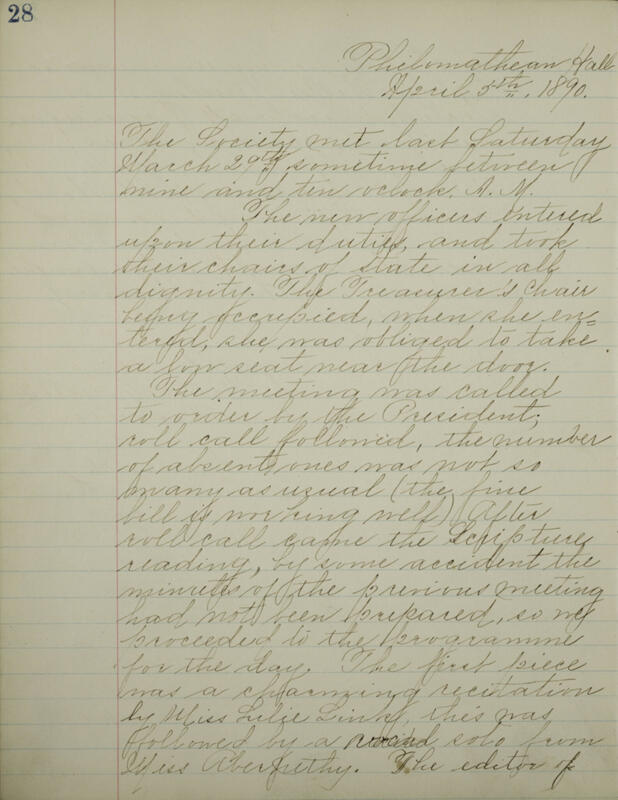 28
Philomathean Hall
April 5th, 1890.
The Society met last Saturday
March 29th, sometime between
nine and ten oclock. A. M.
The new officers entered
upon their duties, and took
their chairs of state in all
dignity. The Treasurer's chair
being occupied, when she en=
tered, she was obliged to take
a low seat near the door.
The meeting was called
to order by the President;
roll call followed, the number
of absent ones was not so
many as usual (the fine
bill is working well) After
roll call came the Scripture
reading, by some accident the
minutes of the previous meeting
had not been prepared, so we
proceeded to the programme
for the day. The first piece
was a charming recitation
by Miss Lilie Link, this was
followed by a solo from
Miss Abernethy. The editor of